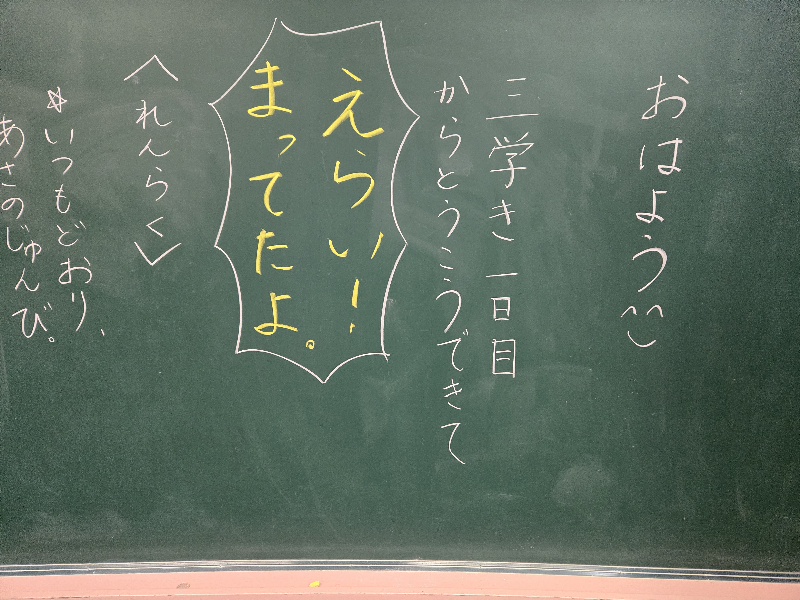 おはよう^^
三学き一日目
からとうこうできて
えらい!
まってたよ。
〈れんらく〉
☆いつもどおり、
あさのじゅんび。